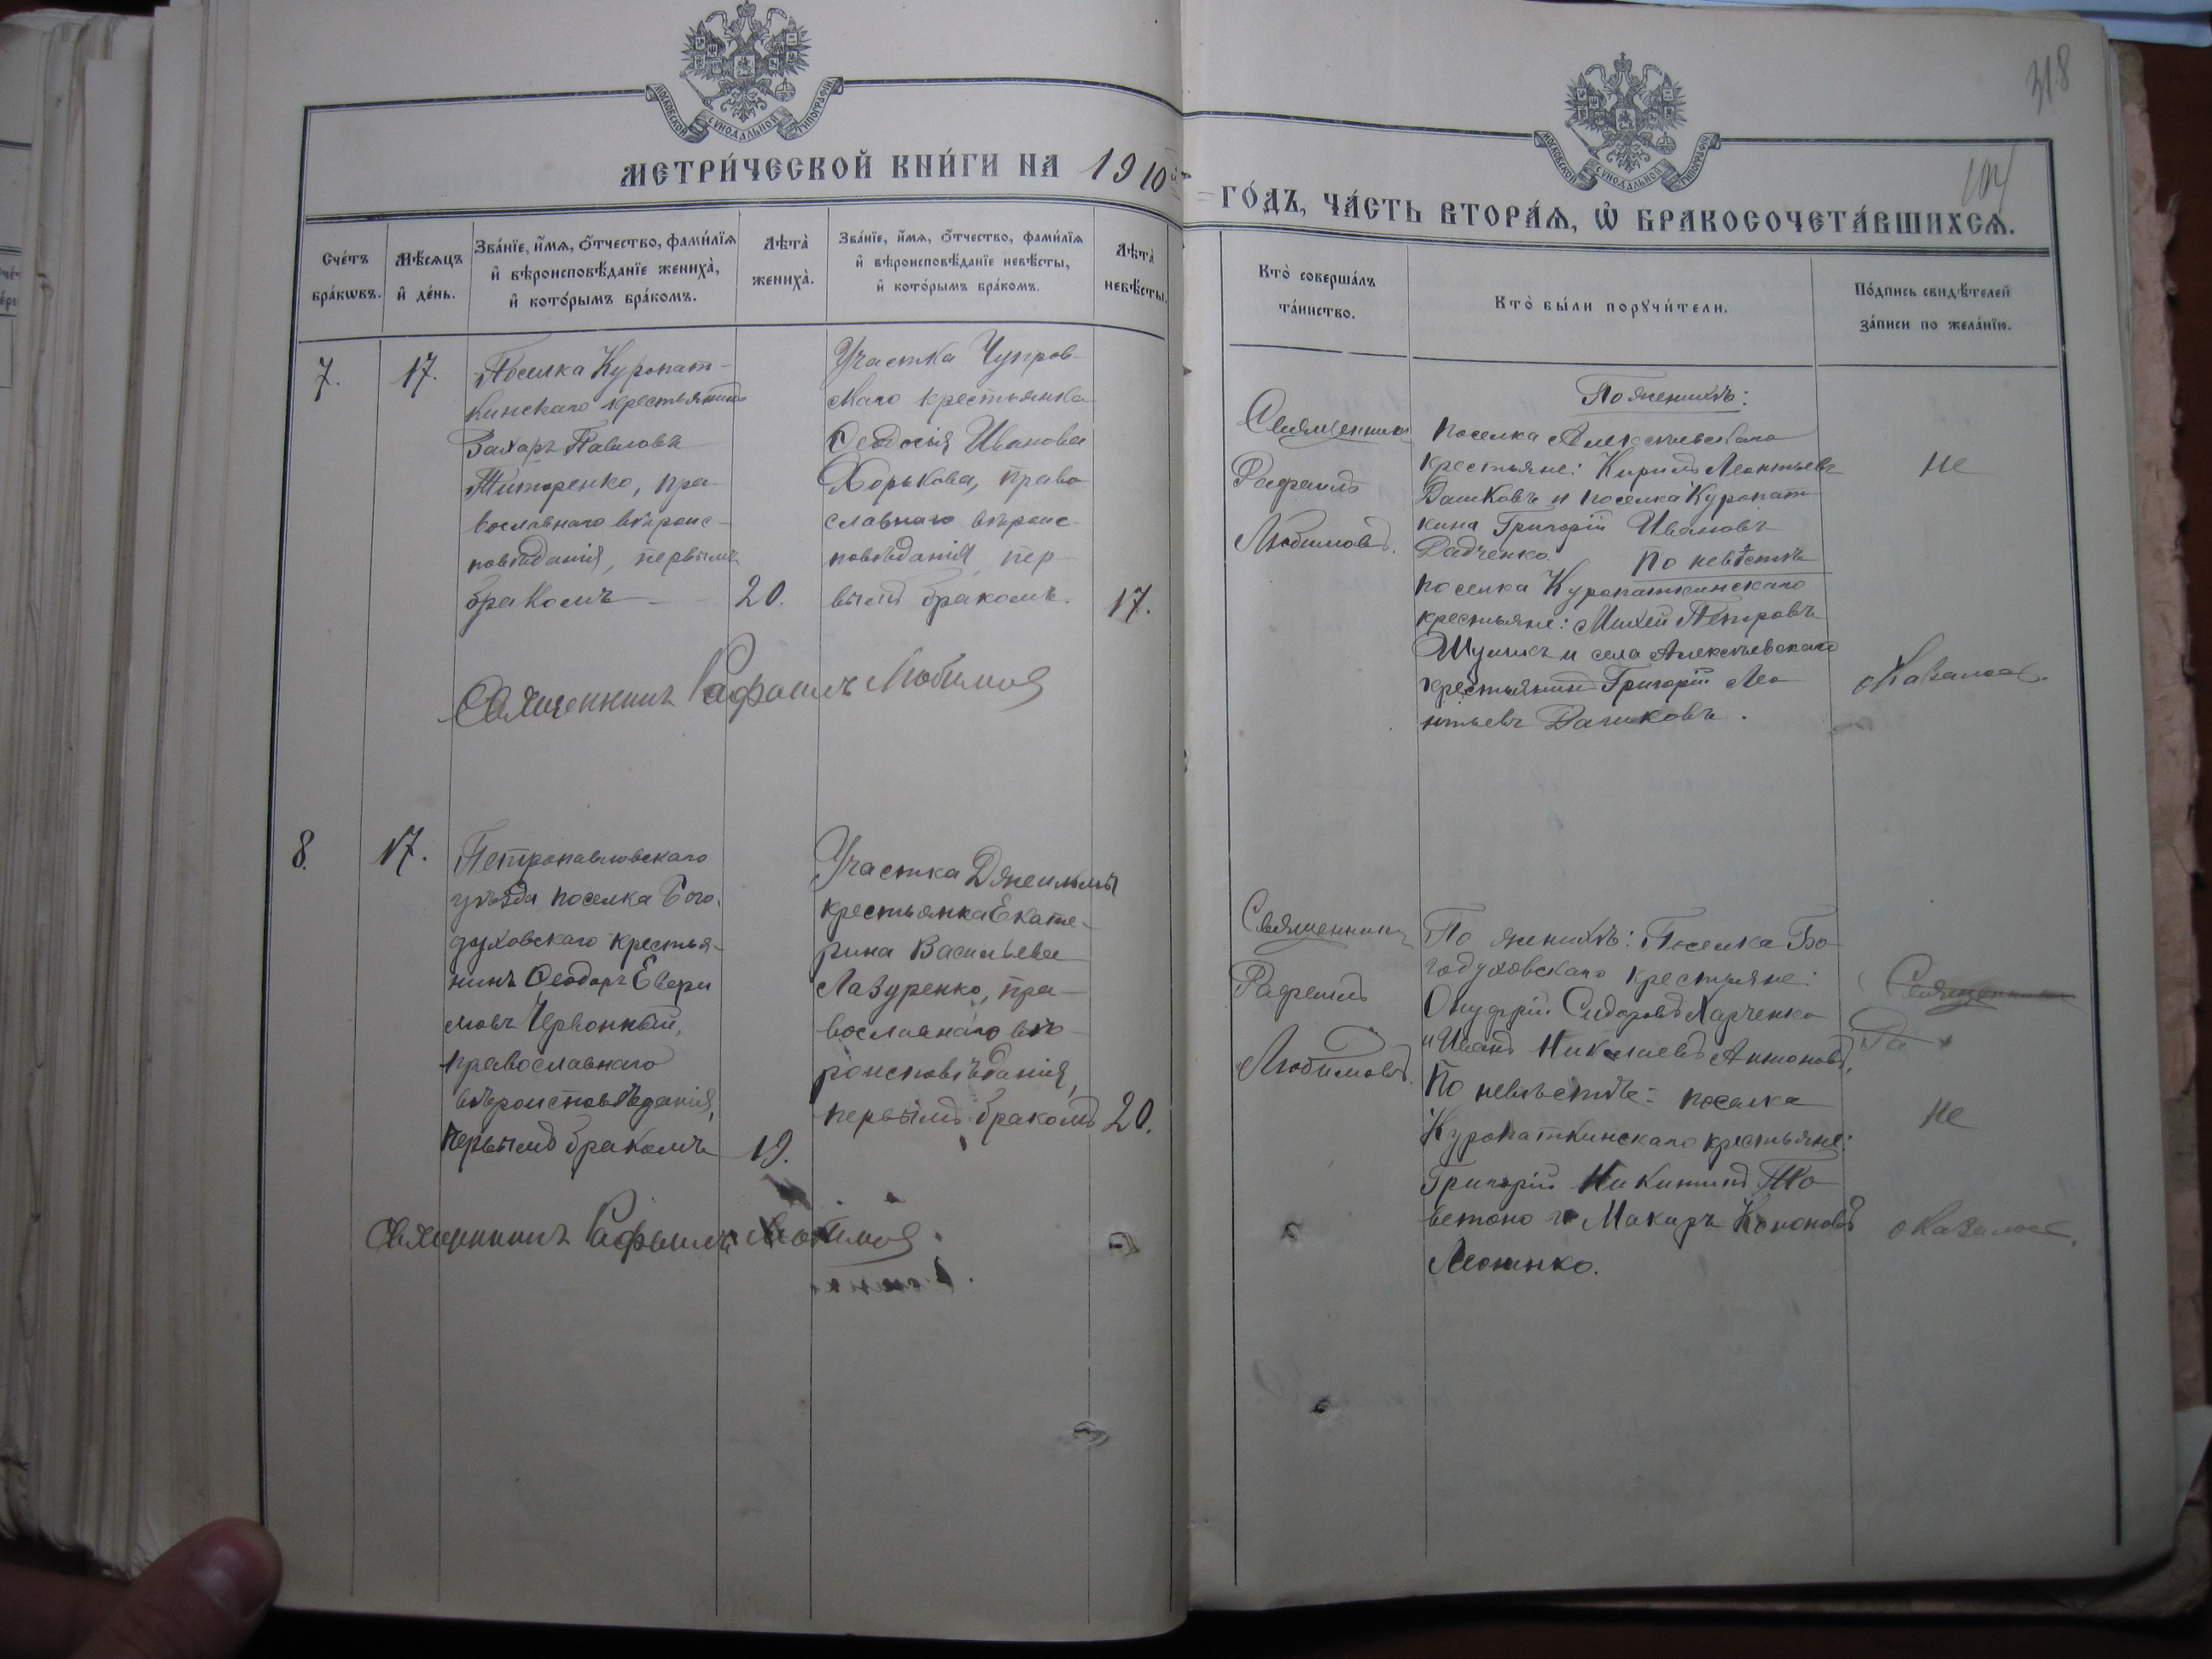 318
104
МОСКОВСКОЙ СУНОДАЛЬНОЙ ТИПОГРАФІИ
МОСКОВСКОЙ СУНОДАЛЬНОЙ ТИПОГРАФІИ
МЕТРИ́ЧЕСКОЙ КНИ́ГИ НА 1910
ГО́ДЪ, ЧА́СТЬ ВТОРА́Ѧ, Ѽ БРАКОСОЧЕТА́ВШИХСѦ.
Сче́тъ
бра́кѡвъ.
Мѣ́сѧцъ
и҆ де́нь.
Зва́нїе, и҆́мѧ, ѻ҆́тчество, фами́лїѧ
и҆ вѣроисповѣ́данїе жениха̀,
и҆ кото́рымъ бра́комъ.
Лѣ́та̀
жениха̀.
Зва́нїе, и҆́мѧ, ѻ҆́тчество, фами́лїѧ
и҆ вѣроисповѣ́данїе невѣ́сты,
и҆ кото́рымъ бра́комъ.
Лѣ́та̀
невѣ́сты.
Кто̀ соверша́лъ
та́инство.
Кто̀ бы́ли порꙋчи́тели.
По́дпись свидѣ́телей
за́писи по жела́нїю.
7.
17.
Поселка Куропат-
кинскаго крестьянинъ
Захаръ Павловъ
Титаренко, пра-
вославнаго вѣроис-
повѣданія, первымъ
бракомъ
20.
Участка Чупров-
скаго крестьянка
Ѳеодосія Иванова
Хорькова, право
славнаго вѣроис-
повѣданія, пер-
вымъ бракомъ.
17.
Священникъ
Рафаилъ
Любимовъ.
По женихѣ:
поселка Алексѣевскаго
крестьяне: Кирилъ Леонтьевъ
Дашковъ и поселка Куропат
кина Григорій Ивановъ
Радченко. По невѣстѣ
поселка Куропаткинскаго
крестьяне: Михей Петровъ
и села Алексѣевскаго
крестьянинъ Григорій Лео
нтьевъ Дашковъ.
Не
оказалось.
Священникъ Рафаилъ Любимовъ
8.
17.
Петропавловскаго
уѣзда поселка Бого-
духовскаго крестья-
нинъ Ѳеодоръ Евфри
мовъ Червонный,
православнаго
вѣроисповѣданія,
первымъ бракомъ
19.
Участка
крестьянка Екате-
рина Васильева
Лазуренко, пра-
вославнаго вѣ-
роисповѣданія,
первымъ бракомъ
20.
Священникъ
Рафаилъ
Любимовъ.
По женихѣ: Поселка Бо-
годуховскаго крестьяне:
Онуфрій Сидоровъ Харченко
и Иванъ Николаевъ Антоновъ,
По невѣстѣ: поселка
Куропаткинскаго крестьяне:
Григорій Никитинъ
и Макаръ Кононовъ
Священникъ
Ра
Не
оказалось.
Священникъ Рафаилъ Любимовъ